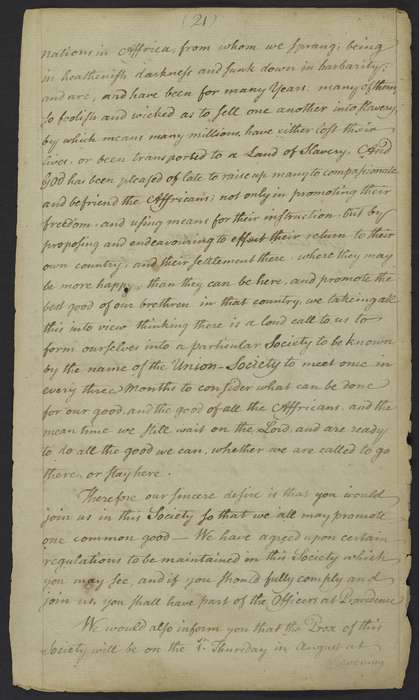 (21)
nations in Affrica, from whom we sprang, being
in heathenish darkness and sunk down in barbarity;
and are, and have been for many Years, many of them
so foolish and wicked as to sell one another into slavery,
by which means many millions have either lost their
lives, or been transported to a Land of Slavery. And
God has been pleased of late to raise up many to compassionate
and befriend the Affricans; not only in promoting their
freedom, and using means for their instruction, but by
proposing and endeavouring to effect their return to their
own country, and their settlement there, where they may
be more happy than they can be here, and promote the
best good of our brethren in that country, we taking all
this into view thinking there is a loud call to us to
form ourselves into a particular Society to be known
by the name of the Union-Society to meet once in
every three Months to consider what can be done
for our good, and the good of all the Affricans, and the
mean time we still wait on the Lord, and are ready
to do all the good we can, whether we are called to go
there, or stay here.
Therefore our sincere desire is that you would
join us in this Society so that we all may promote
one common good — We have agreed upon certain
regulations to be maintained in this Society which
you may see, and if you should fully comply and
join us, you shall have part of the Officers at Providence
We would also inform you that the Prox of this
Society will be on the 1st Thursday in August at